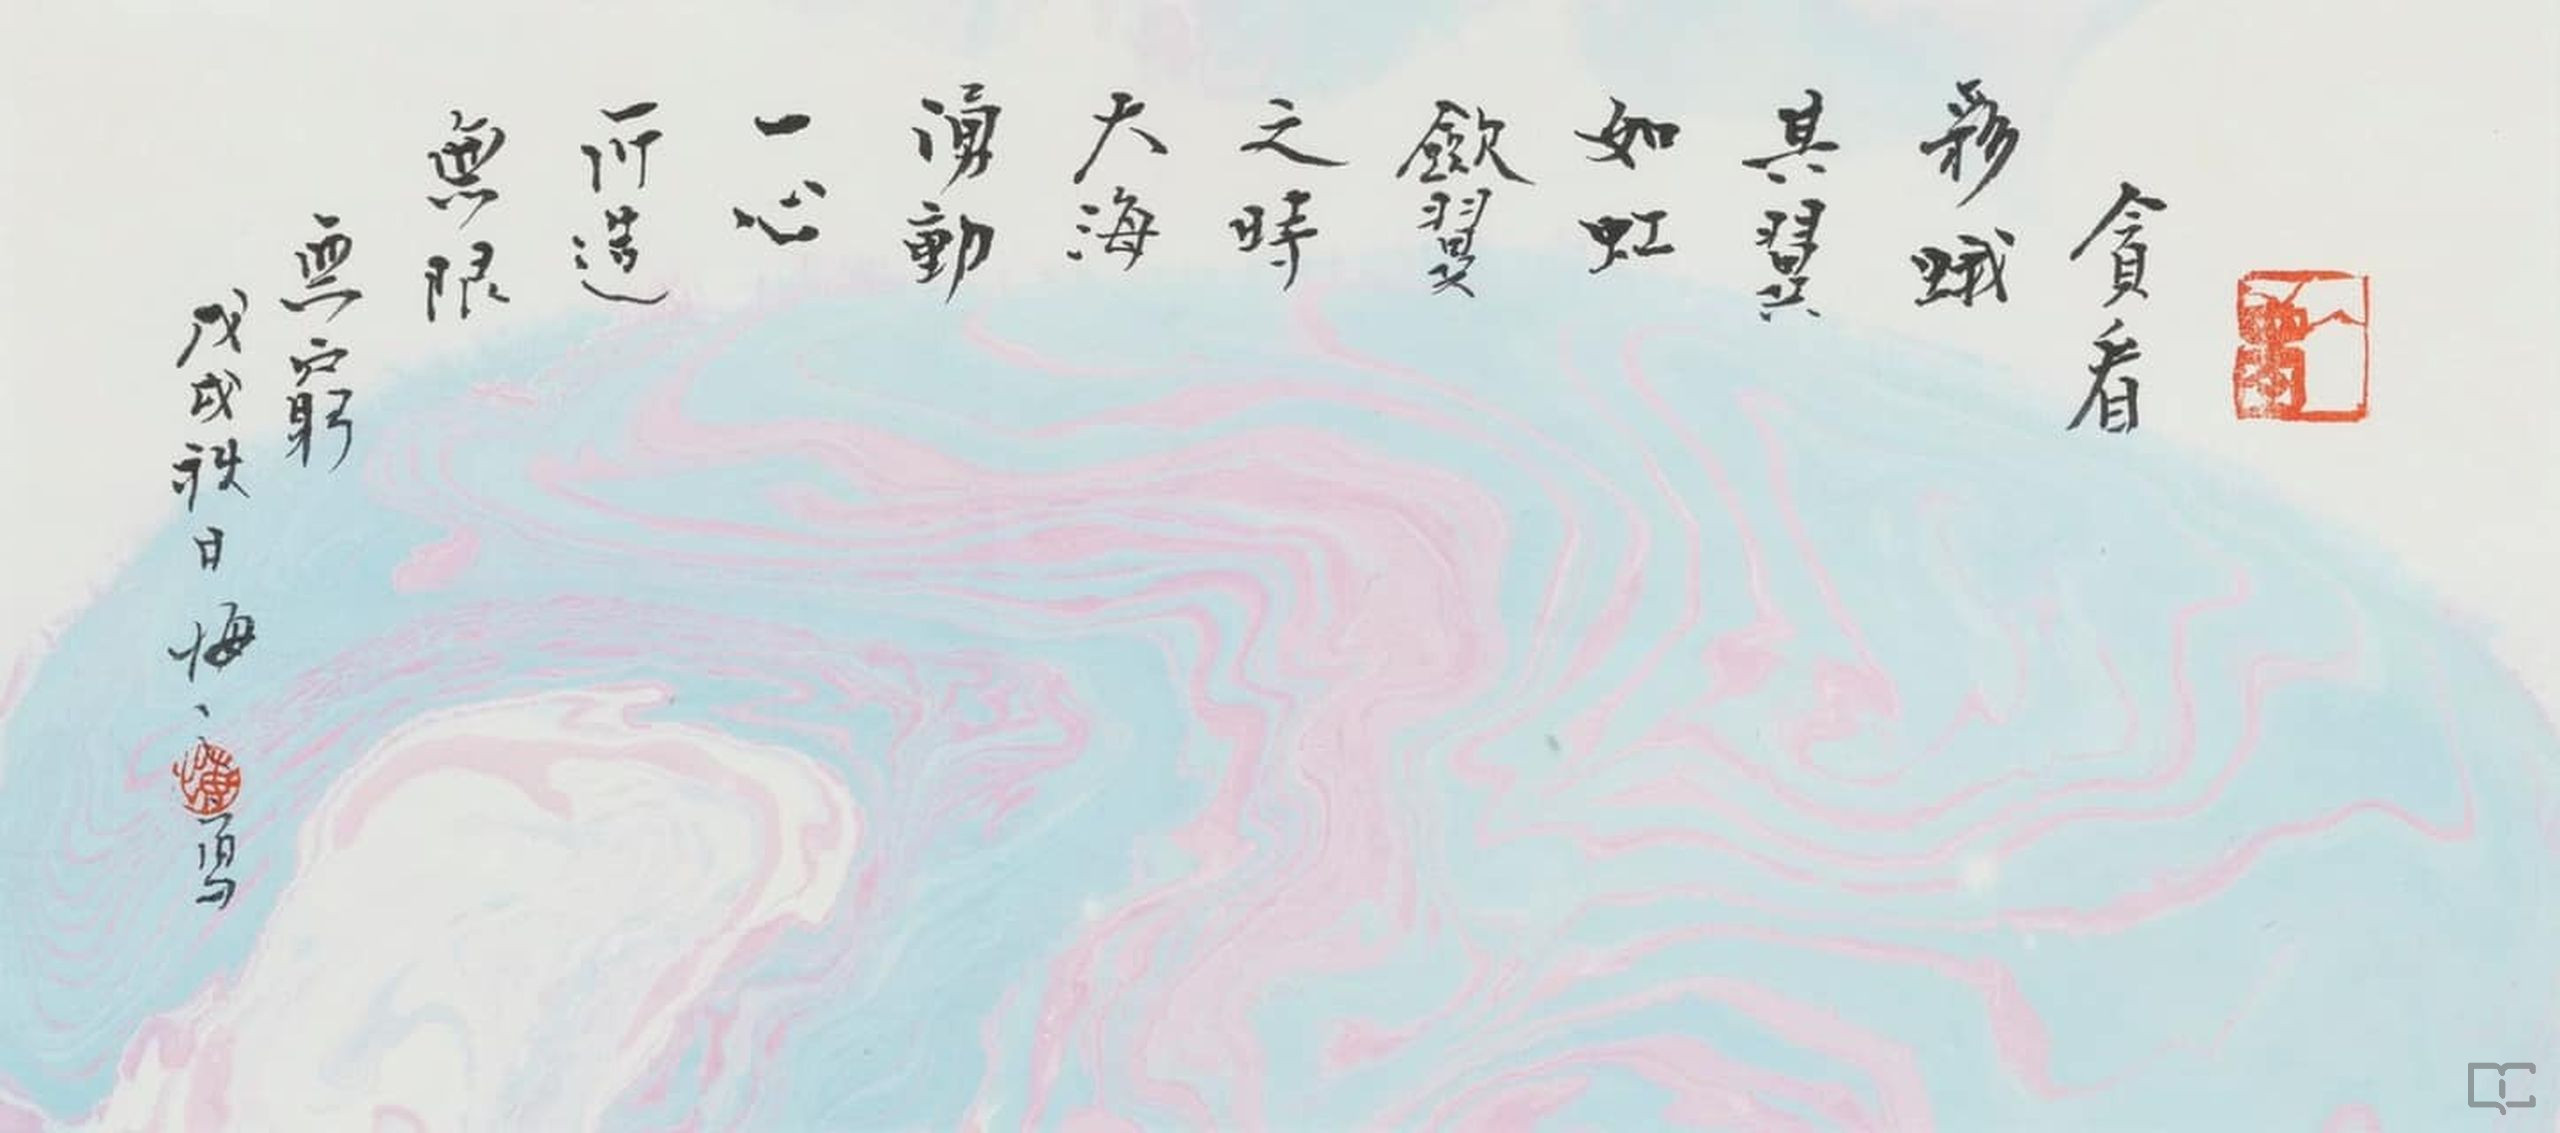 貪看
彩蛾
其翼
如虹
斂翼
之時
大海
湧動
一心
所造
無限
無窮
戊戌秋日悔之寫